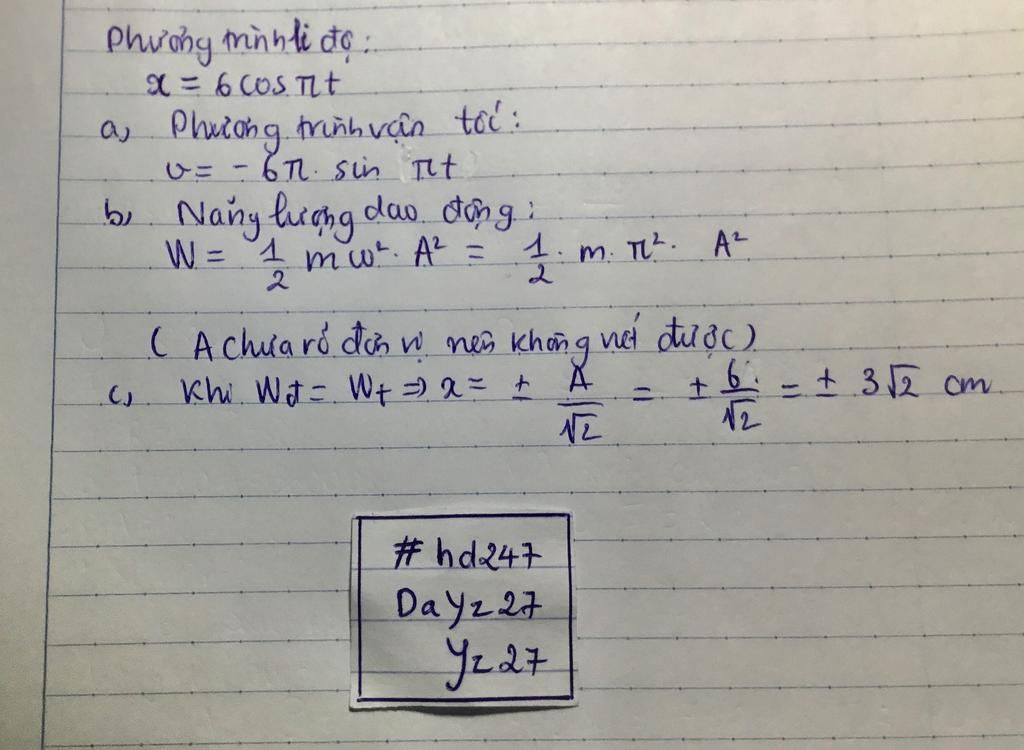 Phương trình li độ:
x = 6 cos πt
a, Phương trình vận tốc:
v = - 6π. sin πt
b, Năng lượng dao động:
W = 1/2 mω². A² = 1/2. m. π². A²
( A chưa rõ đơn vị nên không nết được)
c, Khi Wđ = Wt ⇒ x = ± A/√2 = ± 6/√2 = ± 3√2 cm
# hd247
DaYz27
Yz27